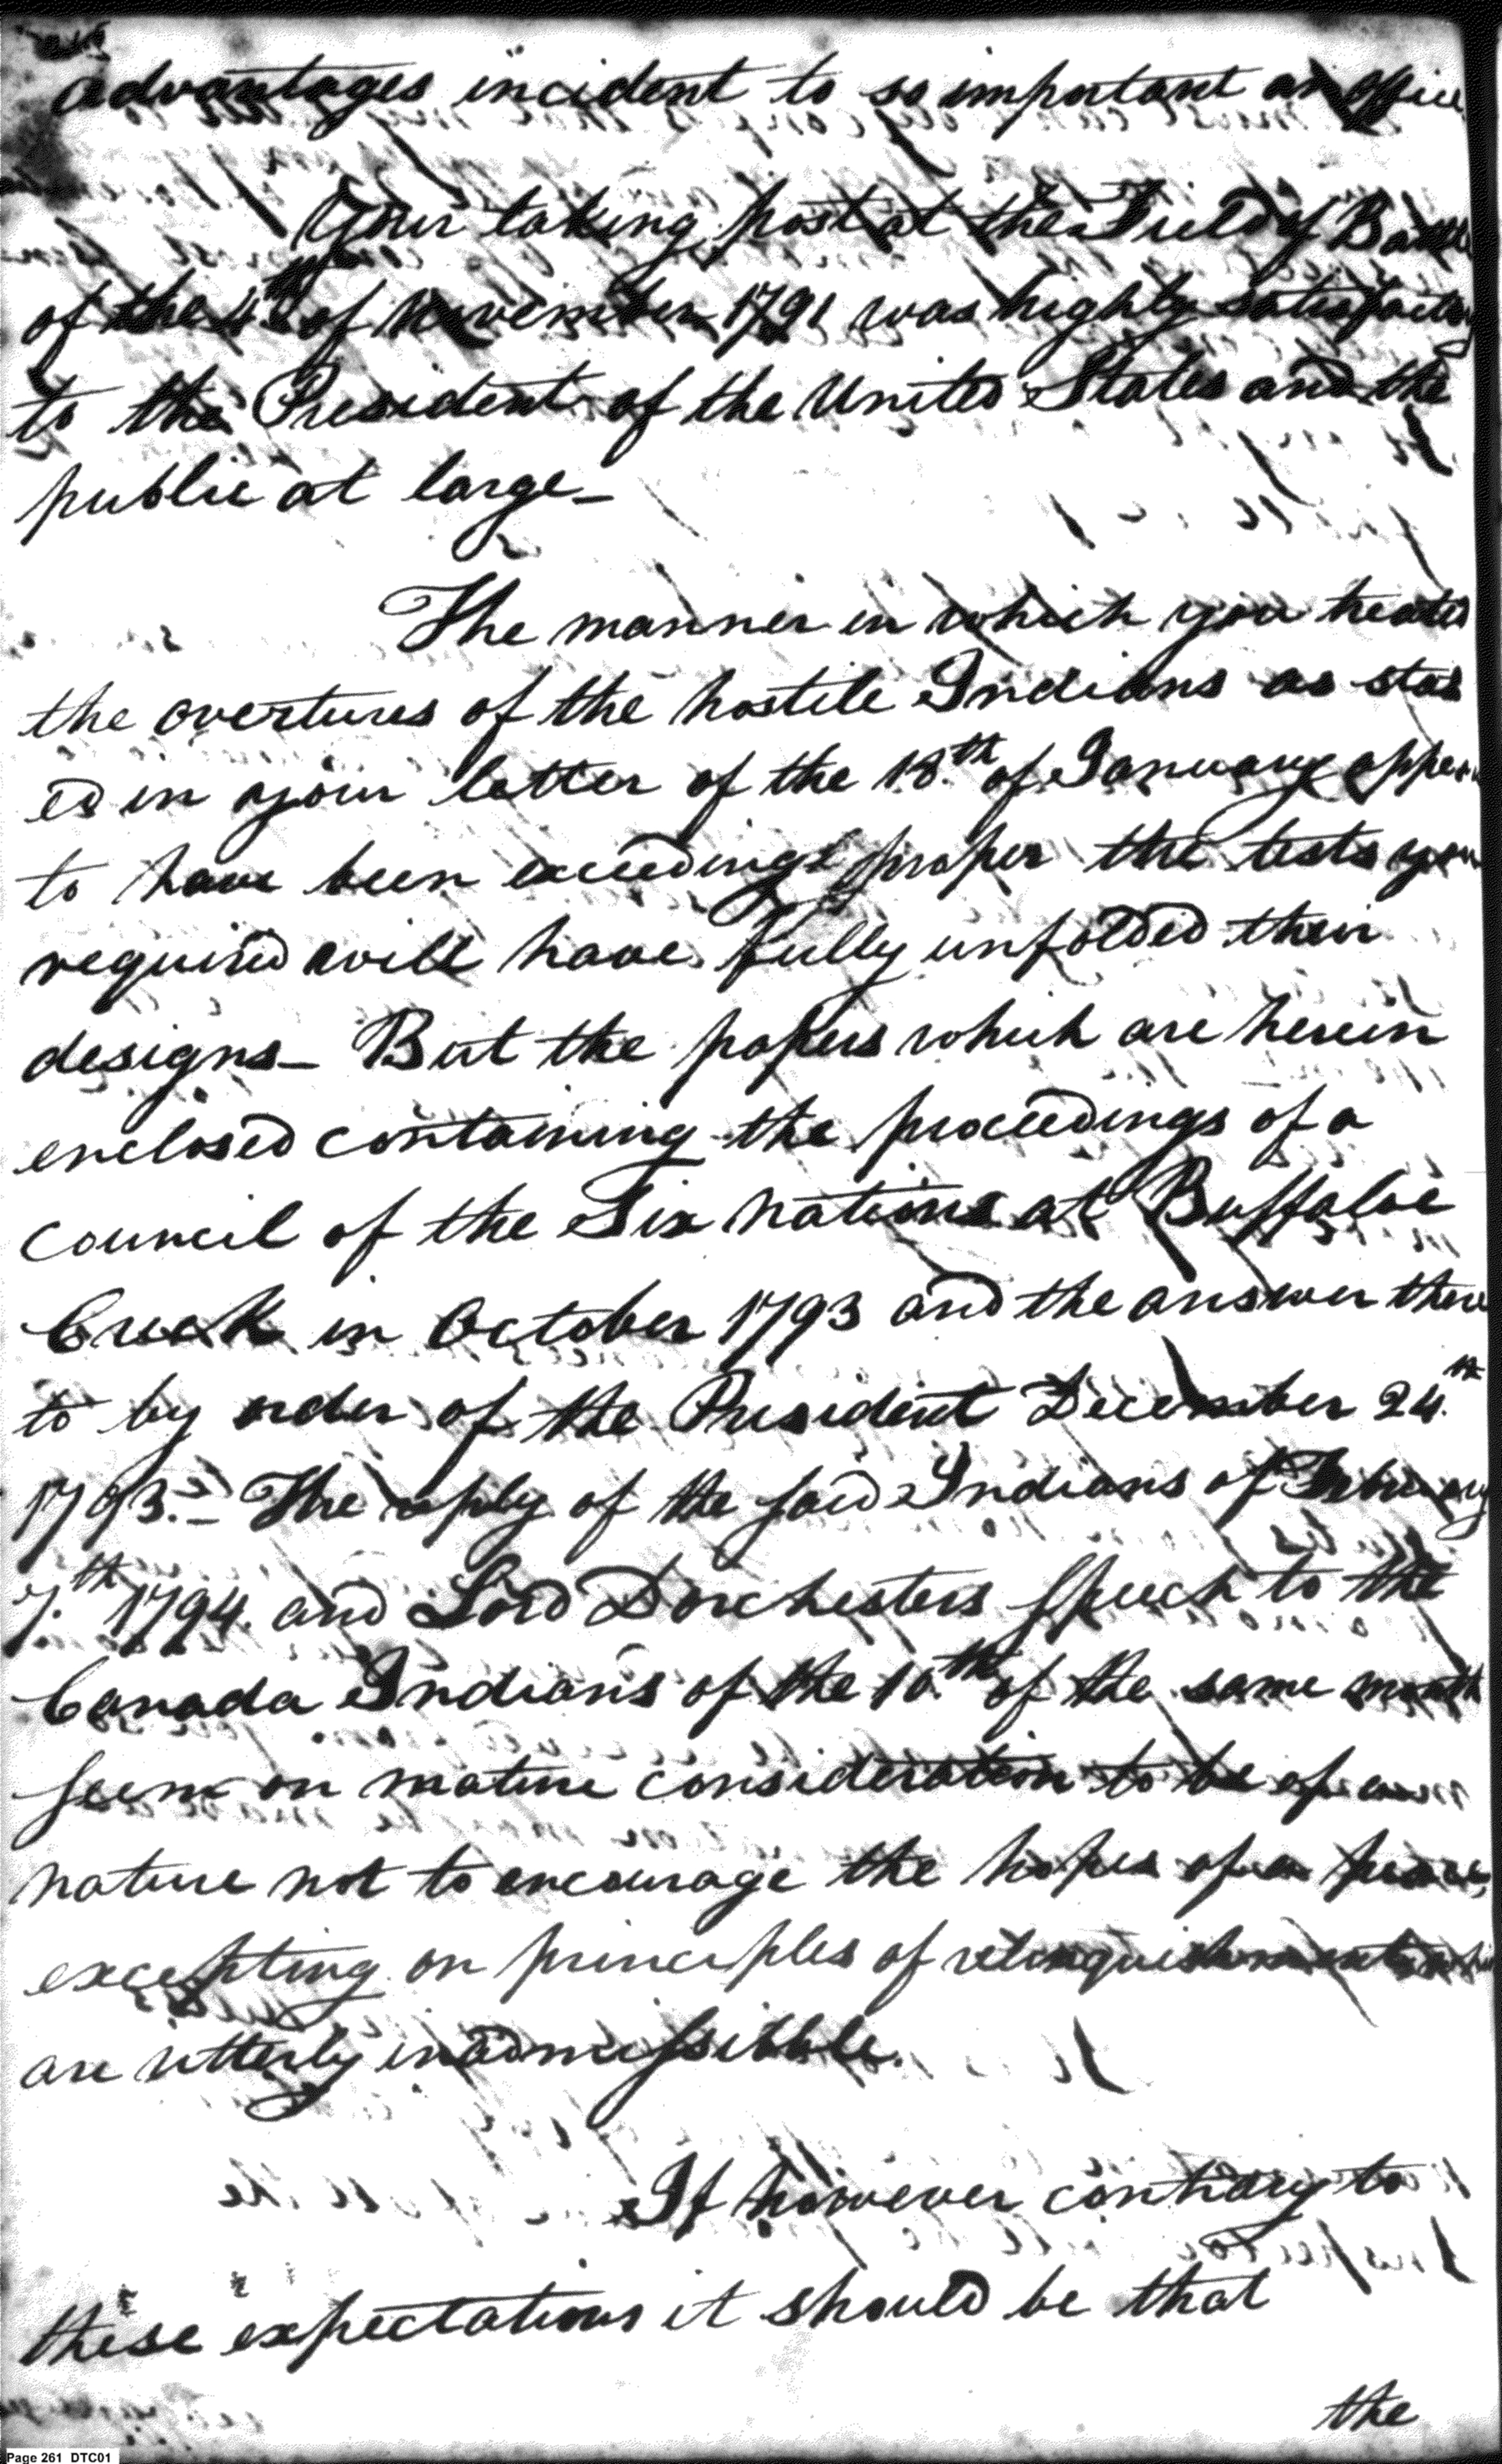 advantages incident to so important an office
Your taking post at the Field of Battle
of the 4th of November 1791 was highly satisfactory
to the President of the United States and the
public at large_
The manner in which you treated
the overtures of the hostile Indians as stat
ed in your letter of the 18.th of January appear
to have been exceedingly proper the tests you
required will have fully unfolded their
designs_ But the papers which are herein
enclosed containing the proceedings of a
council of the Six nations at Buffaloe
Creek in October 1793 and the answer there
to by order of the President December 24.th
1793._ The reply of the said Indians of February
7.th 1794. and Lord Dorchesters speech to the
Canada Indians of the 10.th of the same month
seem on mature consideration to be of a
nature not to encourage the hopes of a peace,
excepting on principles of relinquishment
are utterly inadmissible.
If however contrary to
these expectations it should be that
the
Page 261 DTC01